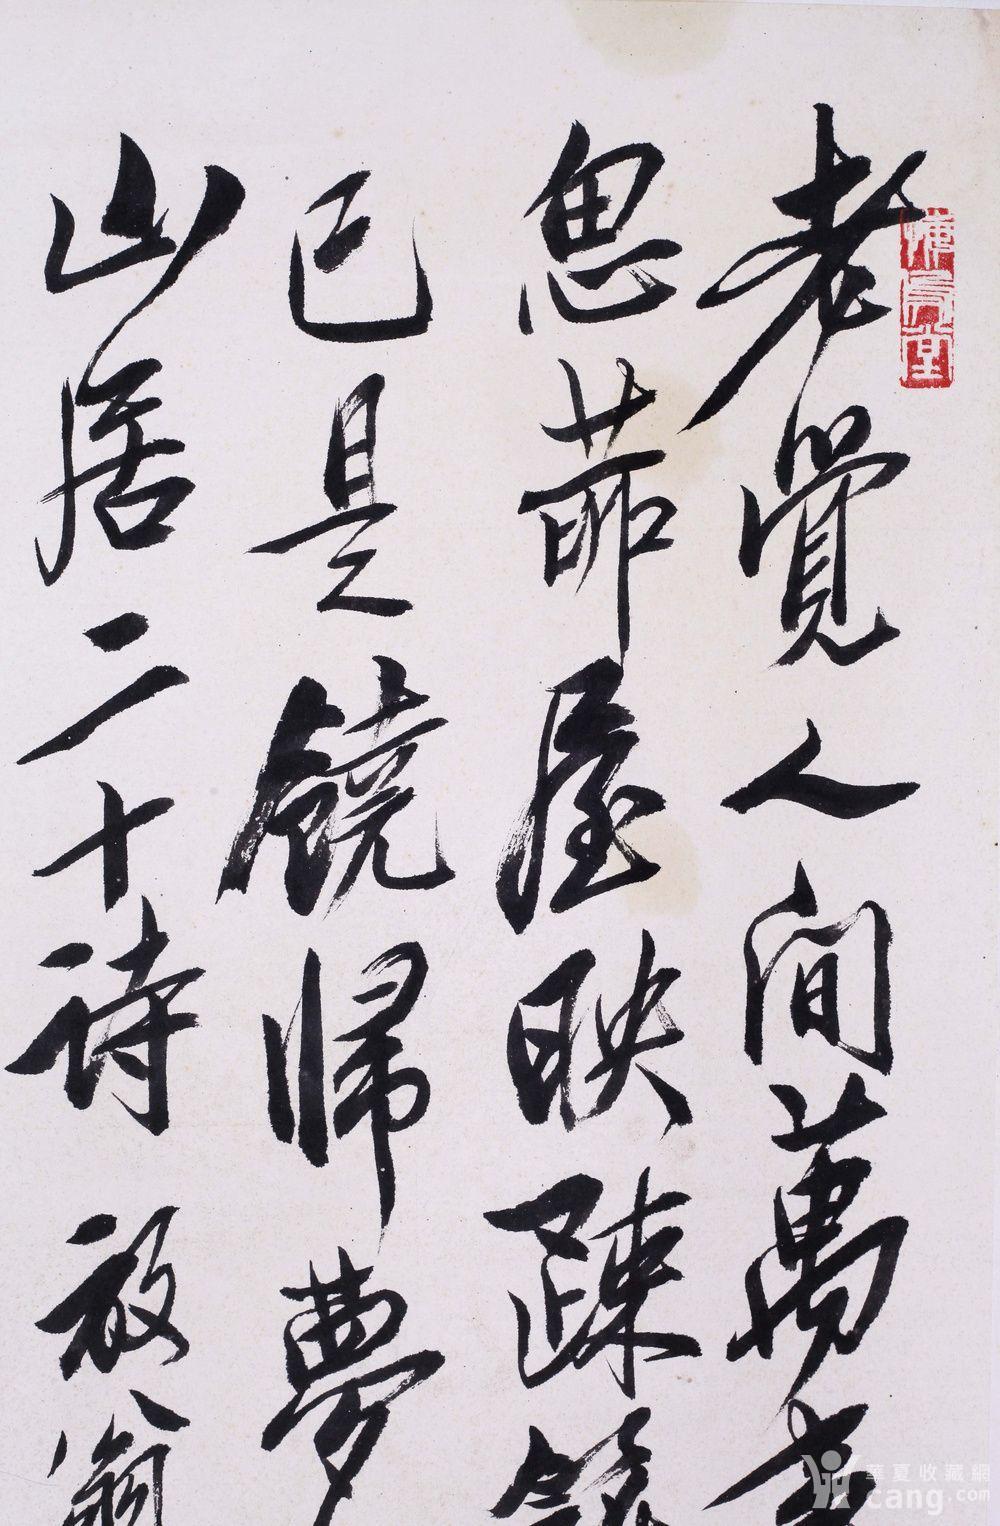 老覺人間萬
思茆屋映疎
已是饒歸夢
山居二十詩 放翁
堂
華夏收藏網
cang.com